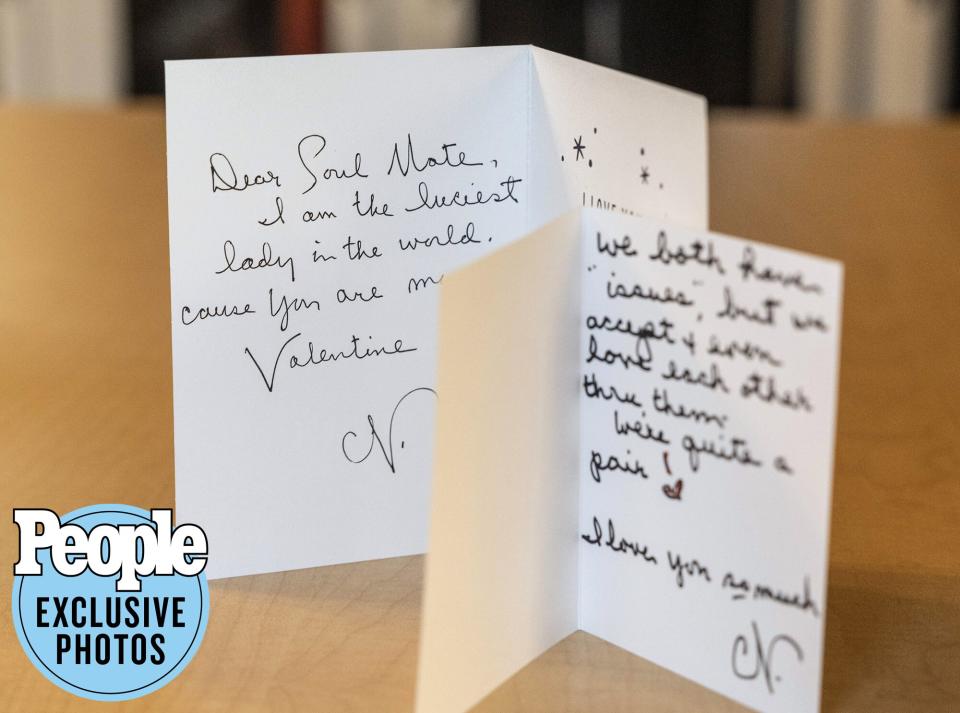 Dear Soul Mate,
I am the luciest
lady in the world.
cause you are m
Valentine
N.
I LOVE YOU
we both have
"issues", but we
accept & even
love each other
thru them.
We're quite a
pair!
I love you so much
N.
People
EXCLUSIVE
PHOTOS